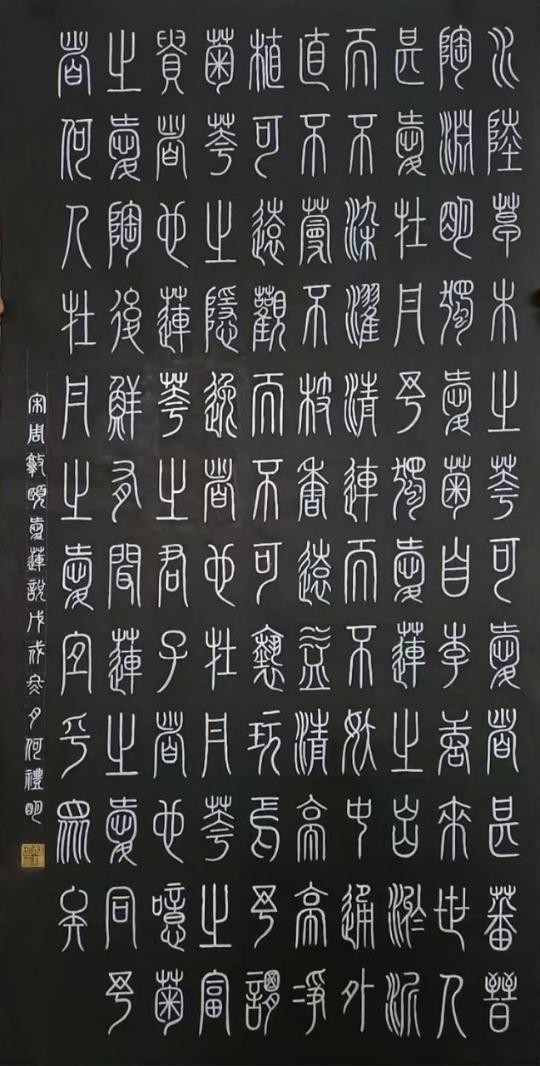 水陸草木之華可愛者甚蕃晉
陶淵明獨愛菊自李唐來世人
甚愛牡丹予獨愛蓮之出淤泥
而不染濯清連而不妖中通外
直不蔓不枝香遠益清亭亭淨
植可遠觀而不可褻玩焉予謂
菊華之隱逸者也牡丹華之富
貴者也蓮華之君子者也噫菊
之愛陶後鮮有聞蓮之愛同予
者何人牡丹之愛宜乎眾矣
宋周敦頤愛蓮說戊戌冬月何禮明